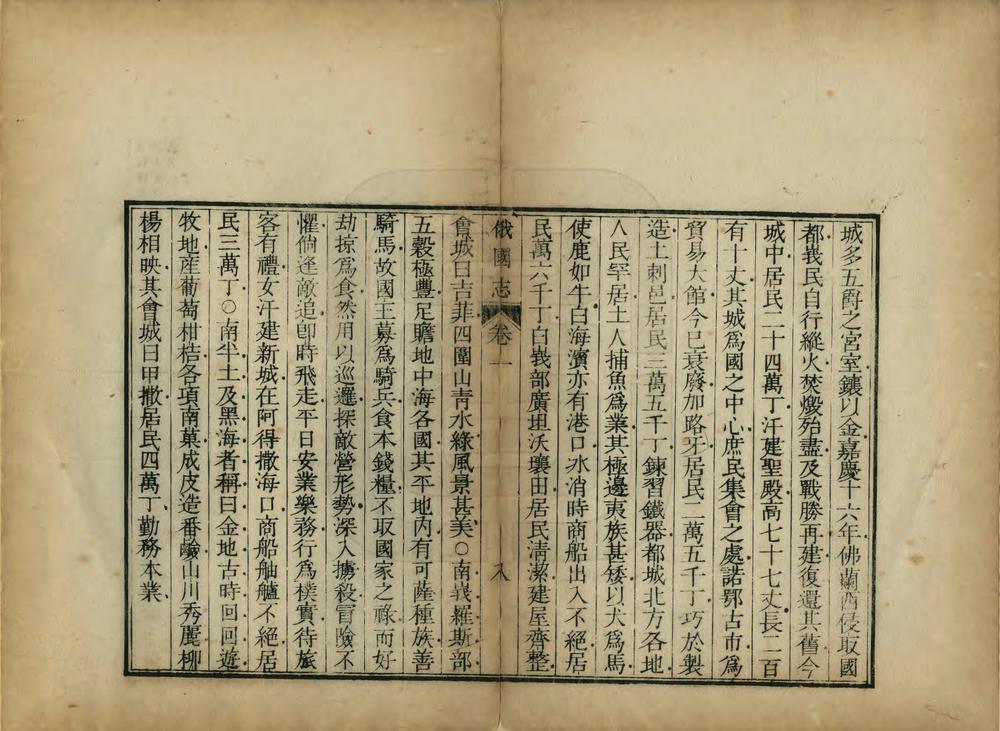 城多五爵之宮室鏤以金嘉慶十六年佛蘭西侵取國
都峩民自行縱火焚燬殆盡及戰勝再建復還其舊今
城中居民二十四萬丁汗建聖殿高七十七丈長二百
有十丈其城爲國之中心庶民集會之處諾鄂古市爲
貿易大館今已衰廢加路牙居民二萬五千丁巧於製
造土刺邑居民三萬五千丁鍊習鐵器都城北方各地
人民罕居土人捕魚爲業其極邊夷族甚矮以犬爲馬
使鹿如牛白海濱亦有港口冰消時商船出入不絕居
民萬六千丁白峩部廣坦沃壤田居民淸潔建屋齊整
俄國志 卷一 八
會城曰吉菲四圍山靑水綠風景甚美○南峩羅斯部
五穀極豐足贍地中海各國其平地內有可薩種族善
騎馬故國王募爲騎兵食本錢糧不取國家之祿而好
劫掠爲食然用以巡邏探敵營形勢深入擄殺冒險不
懼倘逢敵追卽時飛走平日安業樂務行爲樸實待旅
客有禮女汗建新城在阿得撒海口商船舳艫不絕居
民三萬丁○南半土及黑海者稱曰金地古時回回遊
牧地産葡萄柑桔各項南菓成皮造番鹼山川秀麗柳
楊相映其會城曰甲撒居民四萬丁勤務本業